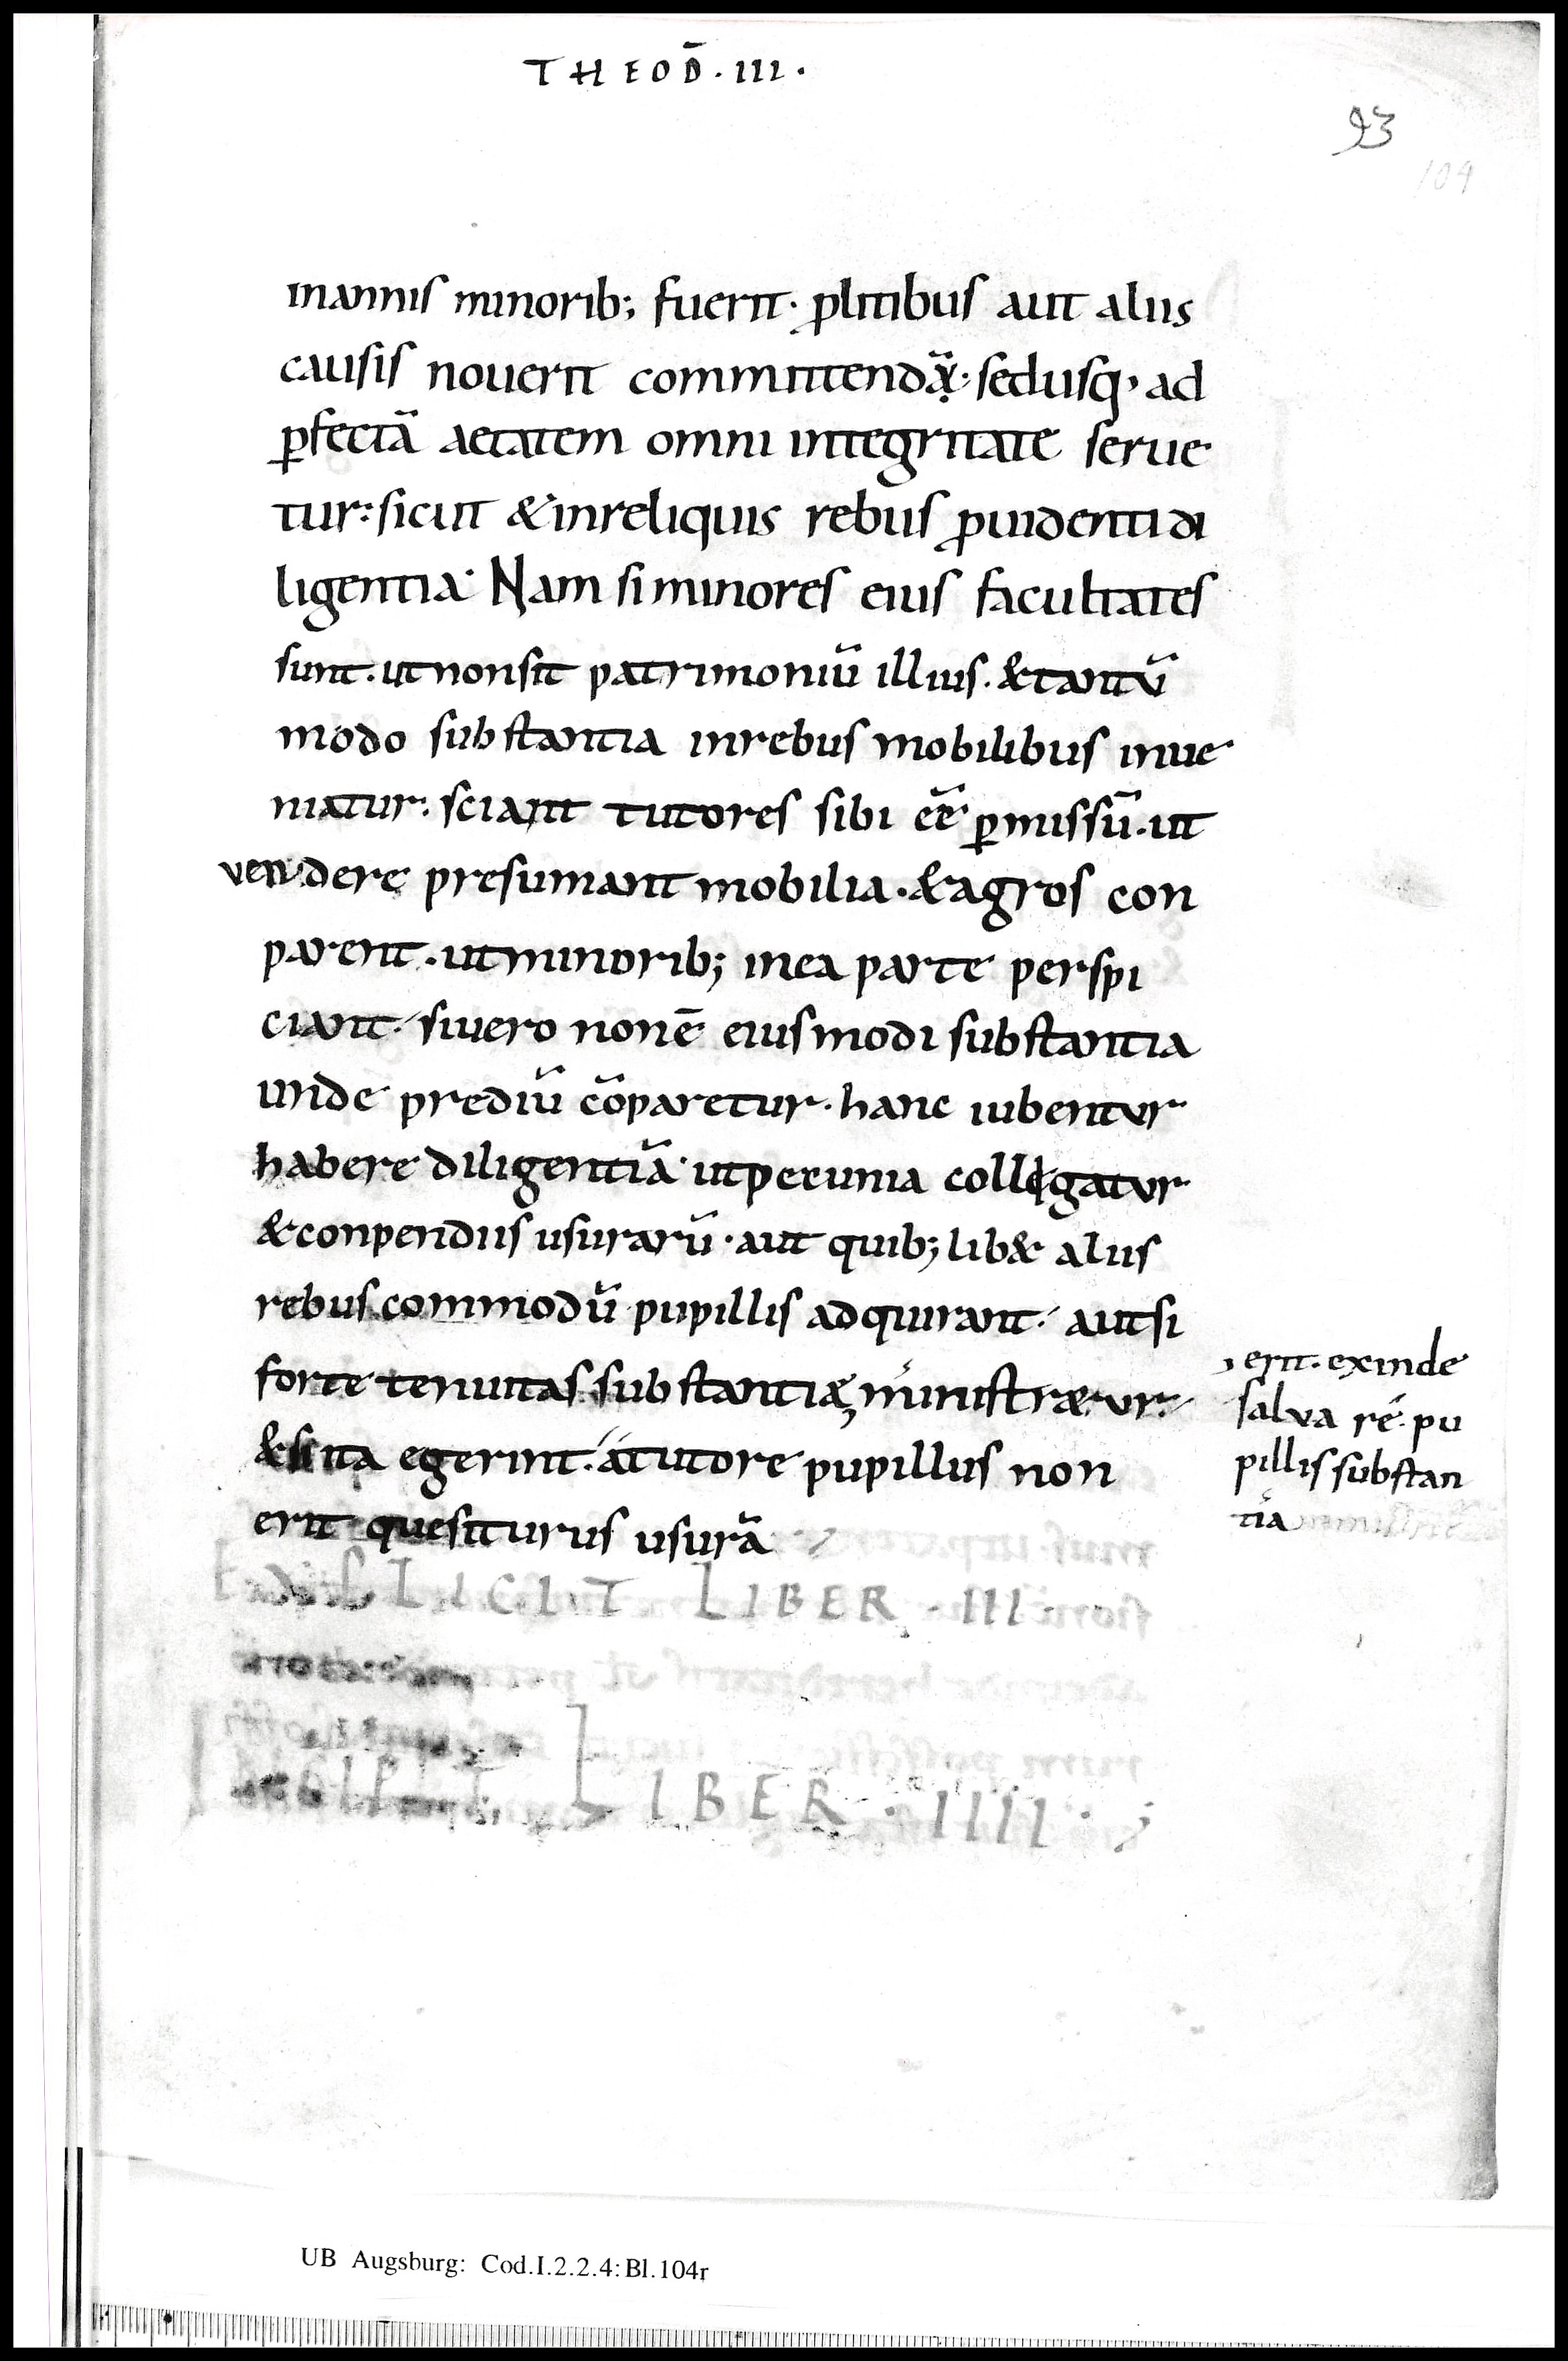 THEOD̄·III·
93
104
inannis minorib; fuerit· p̱litibus aut aliis
causis nouerit committendã· sed usq· ad
ꝑfectã aetatem omni integritate serue
tur: sicut & inreliquis rebus ꝓuidenti di
ligentia· Nam si minores eius facultates
sunt· ut non sit patrimoniũ illius· & tantũ
modo substantia inrebus mobilibus inue
niatur· sciant tutores sibi eẽ ꝑmissũ· ut
vendere presumant mobilia· & agros con
parent· ut minorib; inea parte perspi
ciant· siuero non ē eiusmodi substantia
unde prediũ cõparetur· hanc iubentur
habere diligentiã· ut pecunia collegatur
& conpendiis usurarũ· aut quib; lib& aliis
rebus commodũ pupillis adquirant· aut si
forte tenuitas substantiae ministraetur·
& si ita egerint· a tutore pupillus non
erit quesiturus usurã
erit· exinde
salva re· pu
pillis substan
tia
LIBER·III·
LIBER·IIII·;
UB Augsburg: Cod.I.2.2.4:Bl.104r